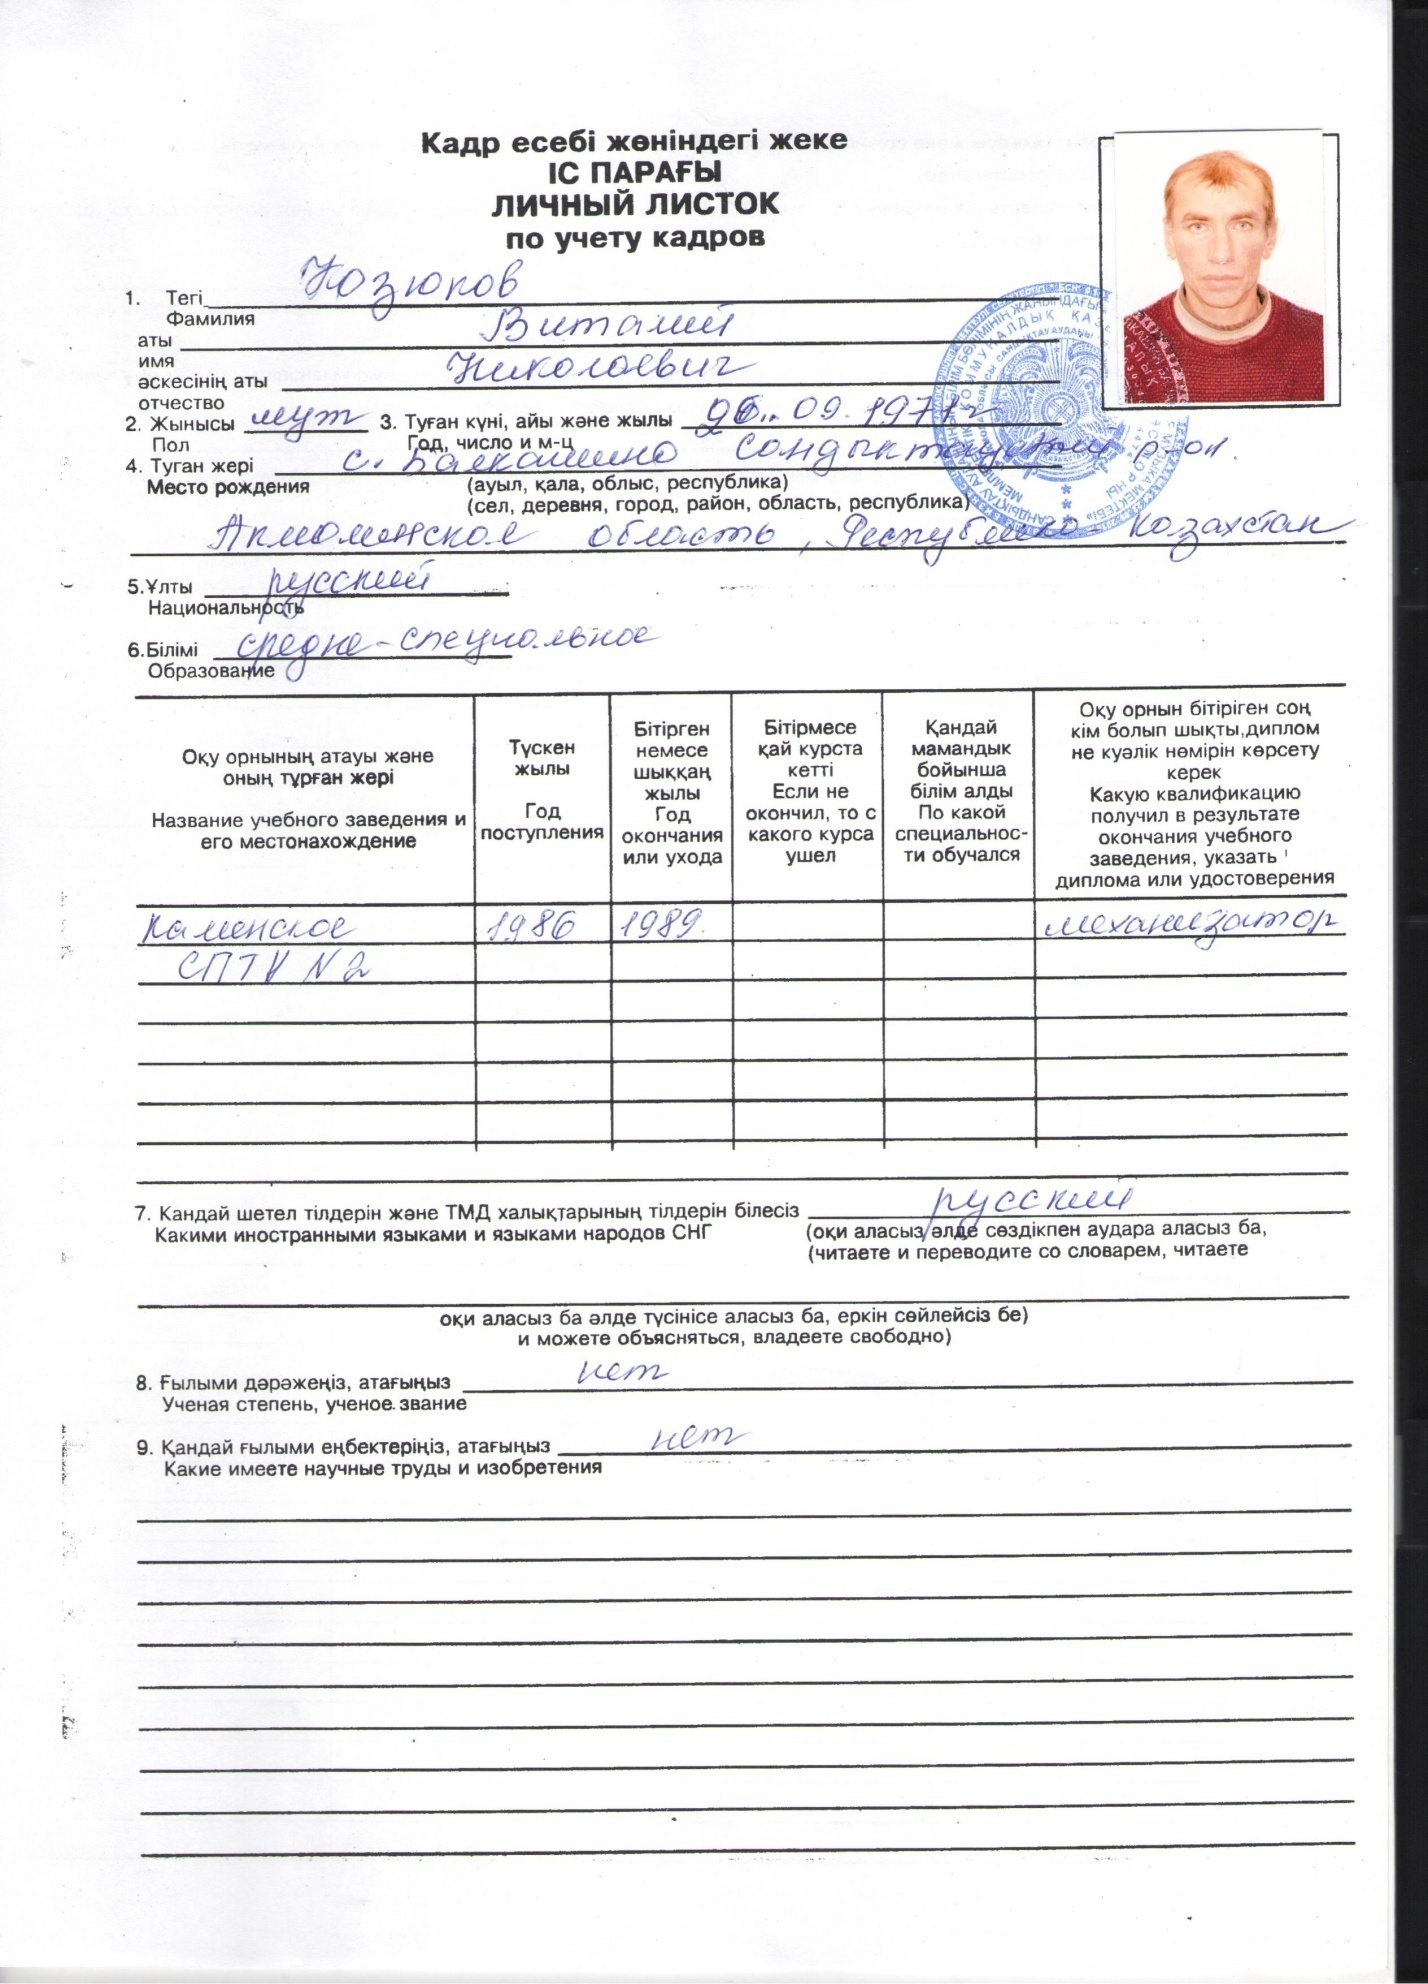 Кадр есебі жөніндегі жеке
ІС ПАРАҒЫ
ЛИЧНЫЙ ЛИСТОК
по учету кадров
1. Тегі Козюков
Фамилия
аты Виталий
имя
әскесінің аты Николаевич
отчество
2. Жынысы муж 3. Туған күні, айы және жылы 09. 1971г
Пол Год, число и м-ц
4. Туган жері с. Балкашино Сандыктауский р-он.
Место рождения (ауыл, қала, облыс, республика)
(сел, деревня, город, район, область, республика)
Акмолинская область, Республика Казахстан
5.Ұлты русский
Национальность
6.Білімі средне-специальное
Образование
Оқу орнының атауы және оның тұрған жері
Название учебного заведения и его местонахождение
Түскен жылы
Год поступления
Бітірген немесе шыққаң жылы
Год окончания или ухода
Бітірмесе қай курста кетті
Если не окончил, то с какого курса ушел
Қандай мамандык бойынша білім алды
По какой специальнос-ти обучался
Оқу орнын бітіріген соң кім болып шықты,диплом не куәлік нөмірін көрсету керек
Какую квалификацию получил в результате окончания учебного заведения, указать диплома или удостоверения
Каменское 1986 1989. механизатор
СПТУ N2
7. Кандай шетел тілдерін және ТМД халықтарының тілдерін білесіз русский
Какими иностранными языками и языками народов СНГ (оқи аласыз әлде сөздікпен аудара аласыз ба,
(читаете и переводите со словарем, читаете
оқи аласыз ба әлде түсінісе аласыз ба, еркін сөйлейсіз бе)
и можете объясняться, владеете свободно)
8. Ғылыми дәрәжеңіз, атағыңыз нет
Ученая степень, ученое звание
9. Қандай ғылыми еңбектеріңіз, атағыңыз нет
Какие имеете научные труды и изобретения